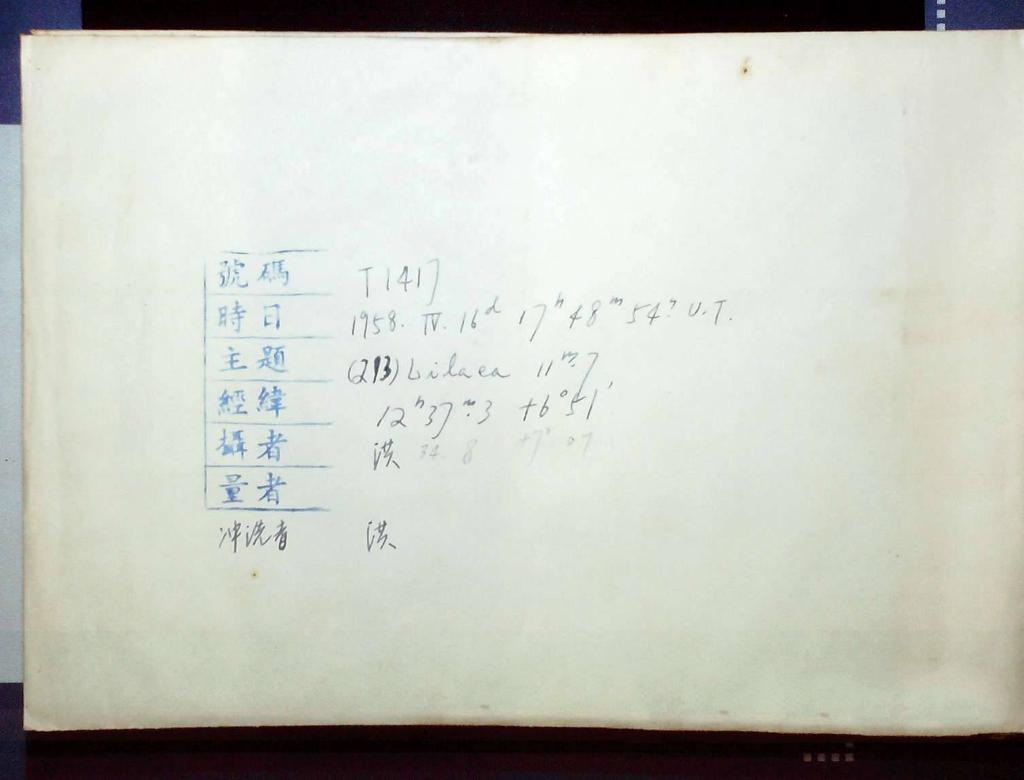 號碼 T1417
時日 1958. IV. 16ᵈ 17ʰ 48ᵐ 54ˢ. U.T.
主題 (213) Lilaea 11ᵐ.7
經緯 12ʰ 37ᵐ.3 +6° 51'
攝者 洪 34. 8 +7° 07
量者
冲洗者 洪